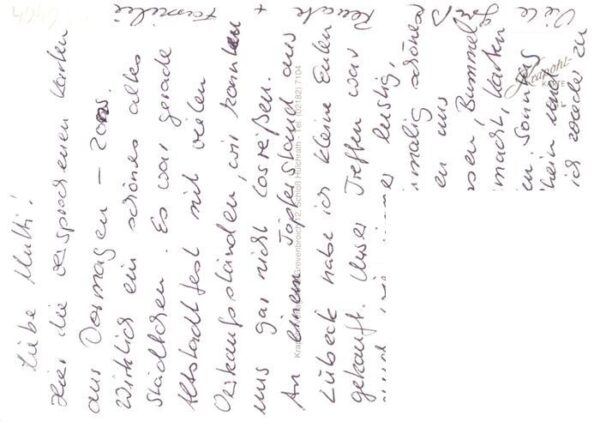 Liebe Mutti!
Hier die versprochenen Karten
aus Dormagen – Zons.
Wirklich ein schönes altes
Städtchen. Es war gerade
Altstadtfest mit vielen
Verkaufsständen, wir konnten
uns gar nicht losreißen.
An einem Töpferstand aus
Lübeck habe ich kleine Eulen
gekauft. Unser Treffen war
lustig,
imalig schönes
en uns
Bummel
macht, Karten
im Sonn
hein und
ich wieder zu
Viele
+
Familie
Krapohl-
Grevenbroich 12, Schloß Hülchrath - Tel. (02182) 7104